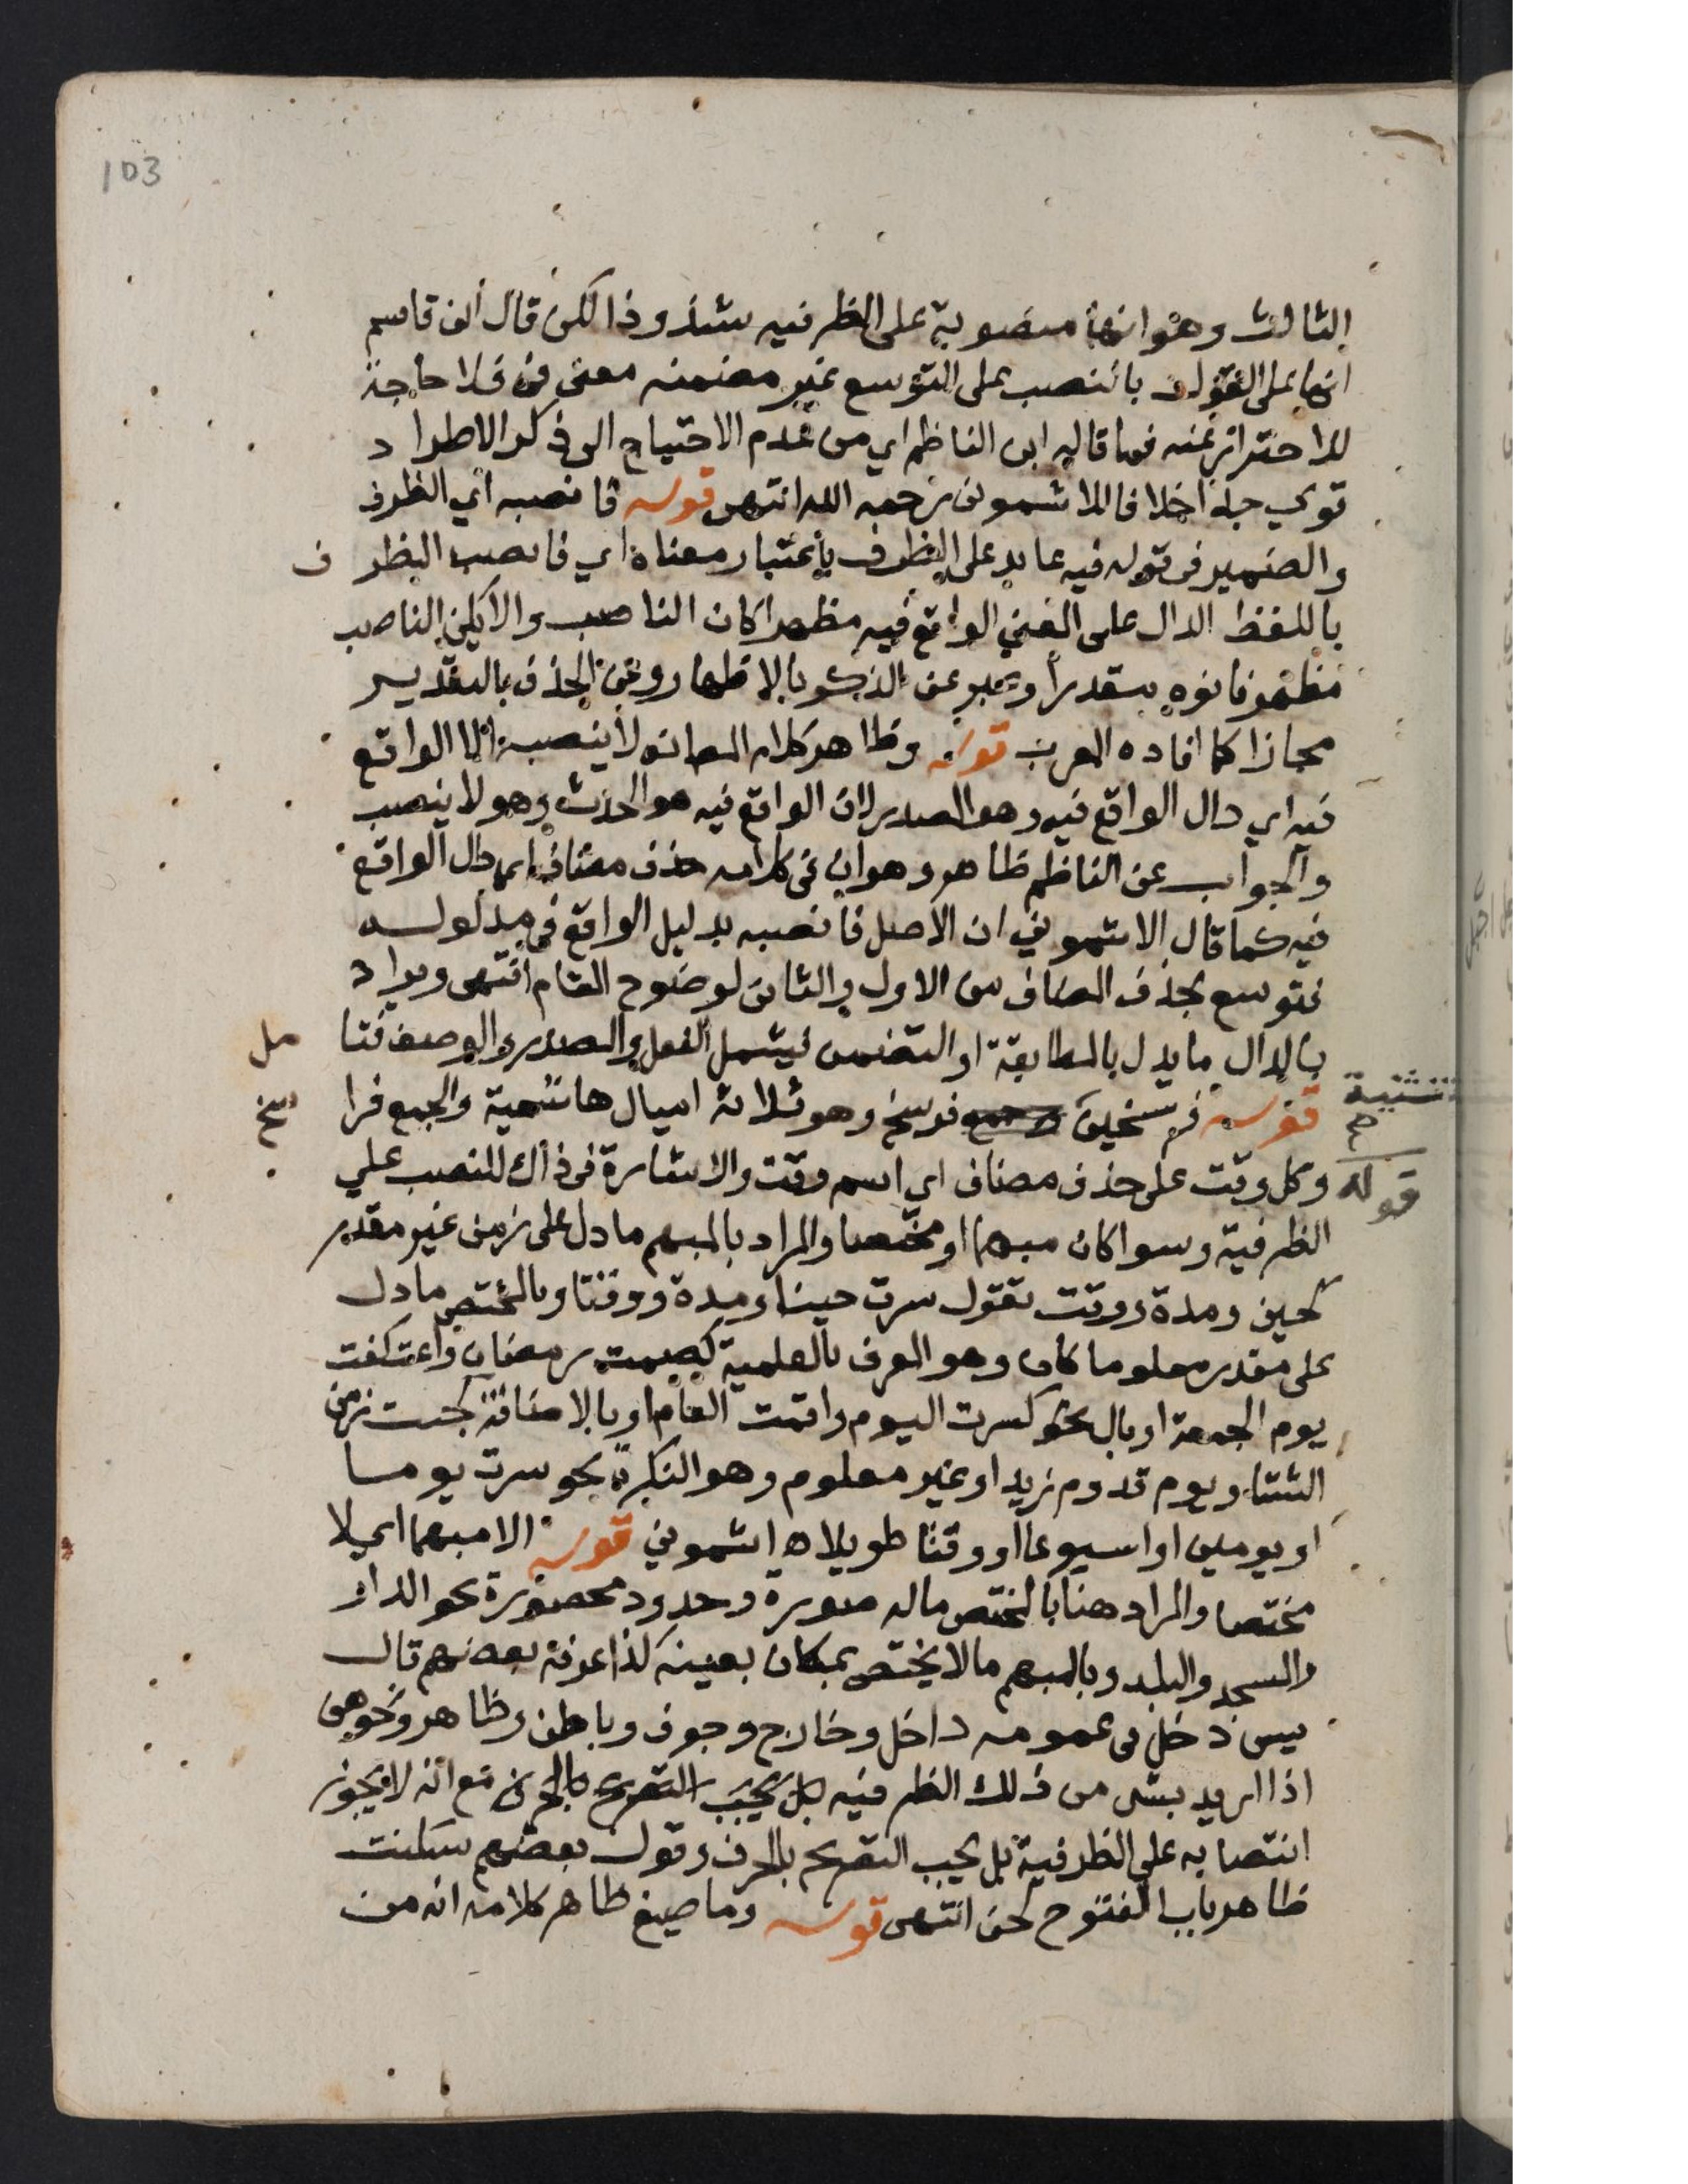 103
الثالث وهو انها منصوبة على الظرفيه شذوذا لكن قال ابن قاسم
انها على القول بالنصب على التوسع غير مضمنه معنى في فلا حاجة
للاحتراز عنه فما قاله ابن الناظم اي من عدم الاحتياج الى ذكر الاطراد
قوي جدا خلافا للاشموني رحمه الله انتهى قوله فانصبه اي الظرف
والضمير في قوله فيه عايد على الظرف باعتبار معناه اي فانصب الظرف
باللفظ الدال على المعني الواقع فيه مظهرا كان الناصب والا يكن الناصب
مظهرا فانوه مقدرا وعبر عن الذكر بالاظهار وعن الحذف بالتقدير
مجازا كما افاده المعرب قوله وظاهر كلامه انه لا ينصبه الا الواقع
فيه اي دال الواقع فيه وهو المصدر لان الواقع فيه هو الحدث وهو لا ينصب
والجواب عن الناظم ظاهر وهو ان في كلامه حذف مضاف اي دال الواقع
فيه كما قال الاشموني ان الاصل فانصبه بدليل الواقع في مدلوله
فتوسع بحذف المضاف من الاول والثاني لوضوح المقام انتهى ويراد
بالدال ما يدل بالمطابقة او التضمن فيشمل الفعل والمصدر والوصف فتامل
قوله فرسخين تثنية صح فرسخ وهو ثلاثة اميال هاشمية والجمع فراسخ
قوله وكل وقت على حذف مضاف اي اسم وقت والاشارة في ذاك للنصب علي
الظرفية وسوا كان مبهما او مختصا والمراد بالمبهم ما دل على زمن غير مقدر
كحين ومدة ووقت تقول سرت حينا ومدة ووقتا وبالمختص ما دل
على مقدر معلوما كان وهو المعرف بالعلمية كصمت رمضان واعتكفت
يوم الجمعة او بال نحو كسرت اليوم واقمت العام او بالاضافة كجئت زمن
الشتا ويوم قدوم زيد او غير معلوم وهو النكرة نحو سرت يوما
او يومين او اسبوعا او وقتا طويلا اه اشموني قوله الا مبهما اي لا
مختصا والمراد هنا بالمختص ماله صورة وحدود محصورة نحو الدار
والمسجد والبلد وبالمبهم ما لا يختص بمكان بعينه كذا عرفه بعضهم قال
يس دخل في عمومه داخل وخارج وجوف وباطن وظاهر ونحوهن
اذا اريد بشي من ذلك الظرفيه بل يجب التصريح بالحرف مع انه لا يجوز
انتصابه علي الظرفية بل يجب التصريح بالحرف وقول بعضهم سكنت
ظاهر باب الفتوح لحن انتهى قوله وما صيغ ظاهر كلامه انه من